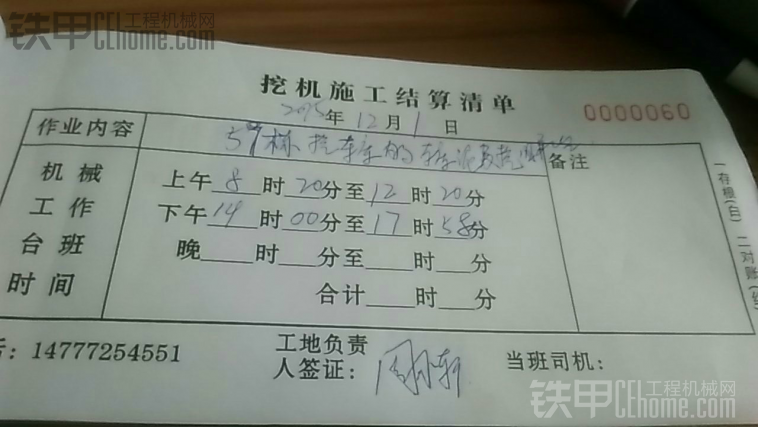 铁甲 工程机械网
CEhome.com
挖机施工结算清单
2015年12月1日
0000060
作业内容
57栋挖车库的
备注
机械
工作
台班
时间
上午8时20分至12时20分
下午14时00分至17时58分
晚 时 分至 时 分
合计 时 分
一存根(白) 二对账(红
话: 14777254551
工地负责
人签证:
当班司机:
铁甲 工程机械网
CEhome.com